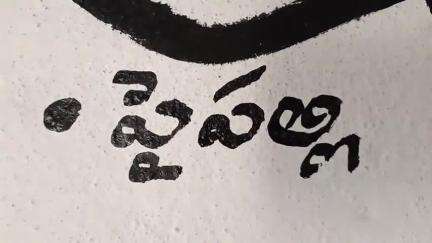 • పైపల్లి